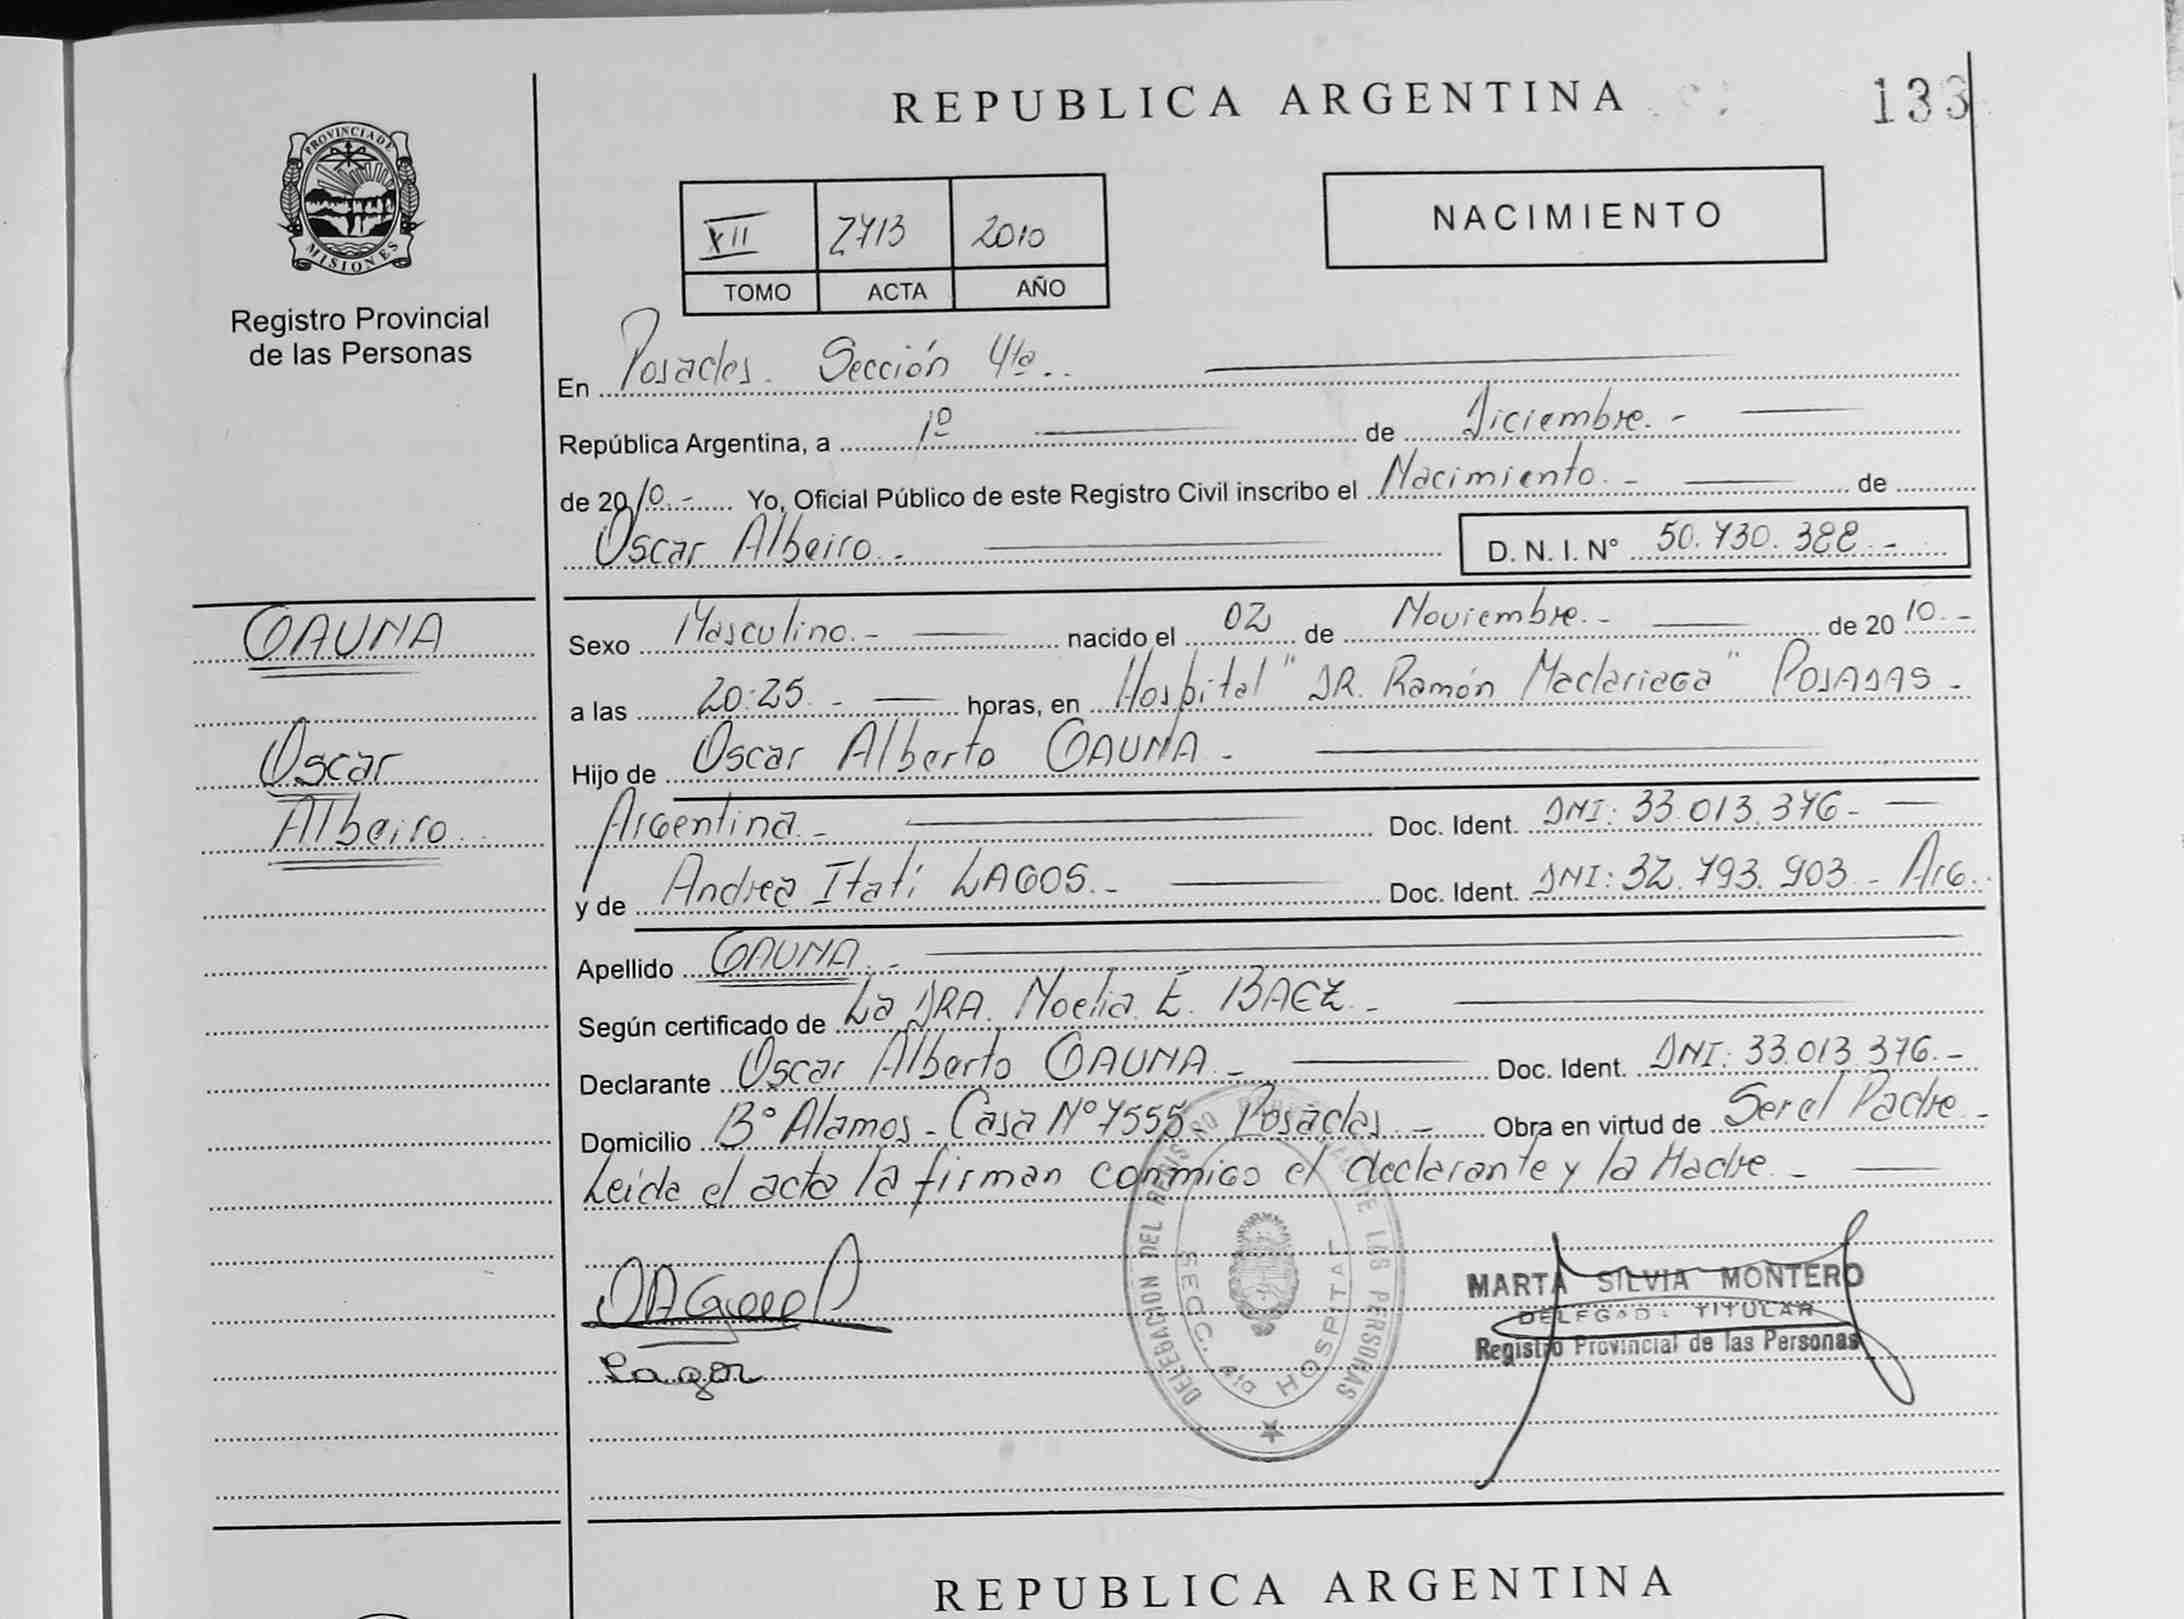 REPUBLICA ARGENTINA
133
PROVINCIA DE
MISIONES
Registro Provincial
de las Personas
XII 2713 2010
TOMO ACTA AÑO
NACIMIENTO
En Posadas. Sección 4ta..
República Argentina, a 1º de Diciembre.-
de 2010.- Yo, Oficial Público de este Registro Civil inscribo el Nacimiento.- de
Oscar Albeiro.- D. N. I. N° 50.730.388.-
GAUNA
Oscar
Albeiro.
Sexo Masculino.- nacido el 02 de Noviembre.- de 2010.-
a las 20:25.- horas, en Hospital "DR. Ramón Madariaga" POSADAS-
Hijo de Oscar Alberto GAUNA-
Argentina.- Doc. Ident. DNI: 33.013.376-
y de Andrea Itatí LAGOS.- Doc. Ident. DNI: 32.793.903- Arg.
Apellido GAUNA.-
Según certificado de La DRA. Noelia E. BAEZ.-
Declarante Oscar Alberto GAUNA- Doc. Ident. DNI: 33.013.376.-
Domicilio B° Alamos- Casa N° 7555 Posadas- Obra en virtud de Ser el Padre-
Leída el acta la firman conmigo el declarante y la Madre.-
Lagos
DELEGACION DEL REGISTRO PROVINCIAL DE LAS PERSONAS
SECC. 4ta HOSPITAL
MARTA SILVIA MONTERO
DELEGADA TITULAR
Registro Provincial de las Personas
REPUBLICA ARGENTINA